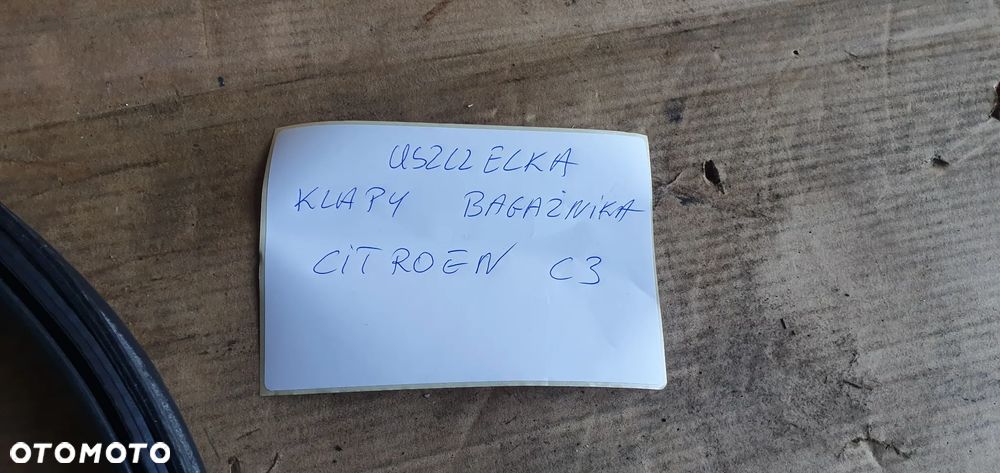 USZCZELKA
KLAPY BAGAŻNIKA
CITROEN C3
OTOMOTO